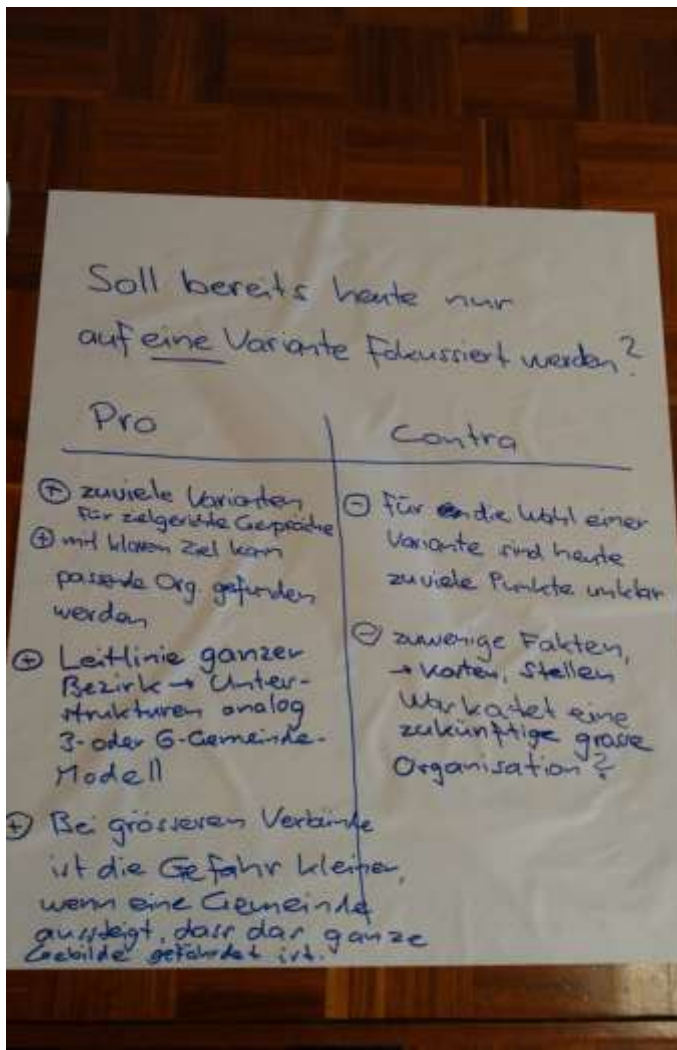 Soll bereits heute nur
auf eine Variante fokussiert werden?
Pro
⊕ zuviele Varianten
für zielgerichte Gespräche
⊕ mit klarem Ziel kann
passende Org. gefunden
werden
⊕ Leitlinie ganzer
Bezirk → Unter-
strukturen analog
3- oder 6-Gemeinde-
Modell
⊕ Bei grösseren Verbände
ist die Gefahr kleiner,
wenn eine Gemeinde
aussteigt, dass das ganze
Gebilde gefährdet ist.
Contra
⊖ Für die Wahl einer
Variante sind heute
zuviele Punkte unklar
⊖ zuwenige Fakten,
→ Kosten, Stellen
Was kostet eine
zukünftige grosse
Organisation?